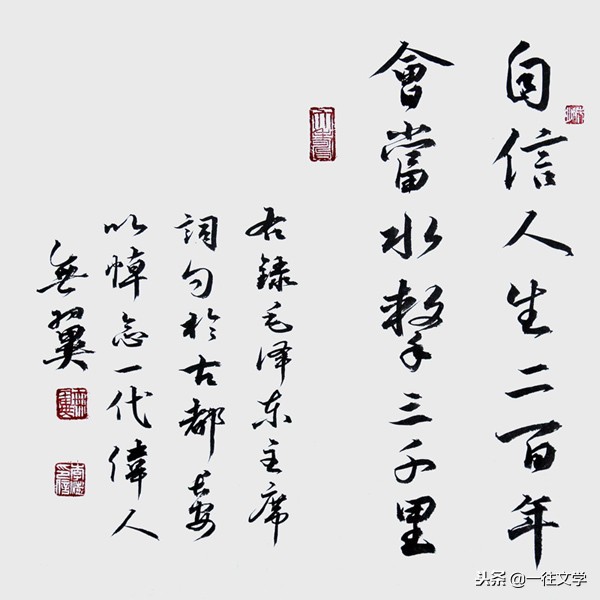 自信人生二百年
會當水擊三千里
右録毛泽东主席
詞句於古都長安
以悼念一代偉人
無翼
头条 @一往文学